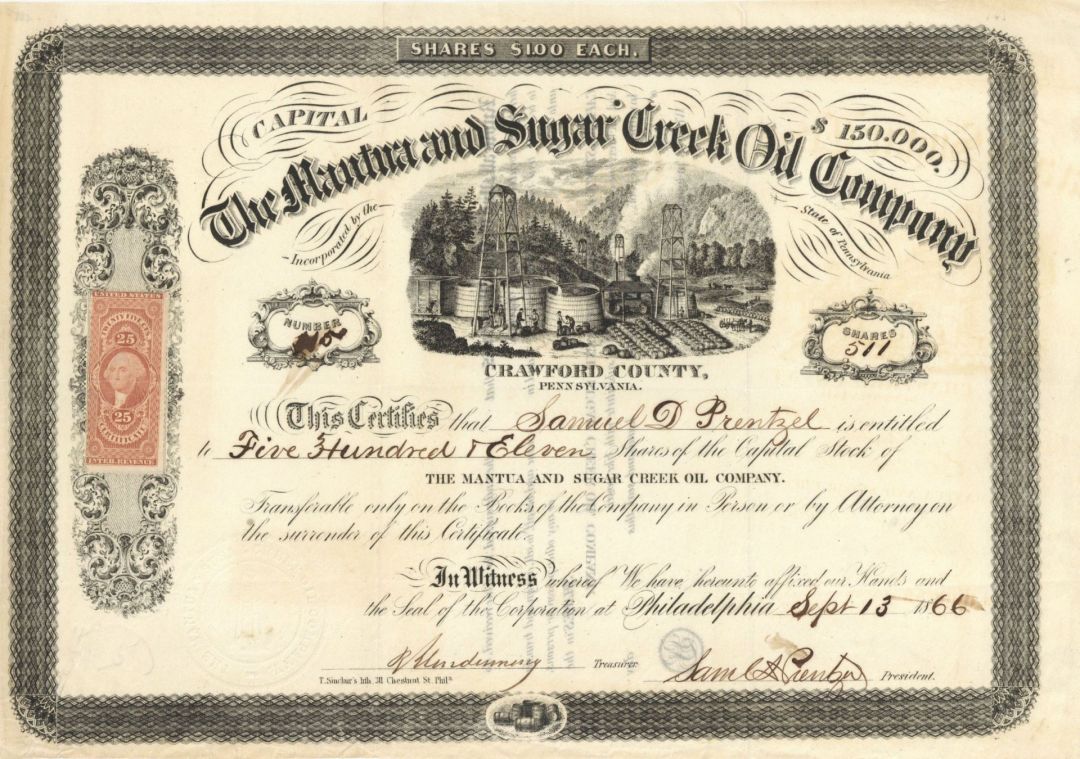 SHARES $1.00 EACH.
CAPITAL $ 150.000.
The Mantua and Sugar Creek Oil Company
Incorporated by the State of Pennsylvania
NUMBER
SHARES
511
CRAWFORD COUNTY,
PENNSYLVANIA.
UNITED STATES
25
25
CERTIFICATE
INTER. REVENUE
This Certifies that Samuel D Prentzel is entitled
to Five Hundred & Eleven Shares of the Capital Stock of
THE MANTUA AND SUGAR CREEK OIL COMPANY.
Transferable only on the Books of the Company in Person or by Attorney on
the surrender of this Certificate
In Witness whereof We have hereunto affixed our Hands and
the Seal of the Corporation at Philadelphia Sept 13 1866
Treasurer
Saml D Prentzel President.
T. Sinclair's lith, 311 Chestnut St. Phila